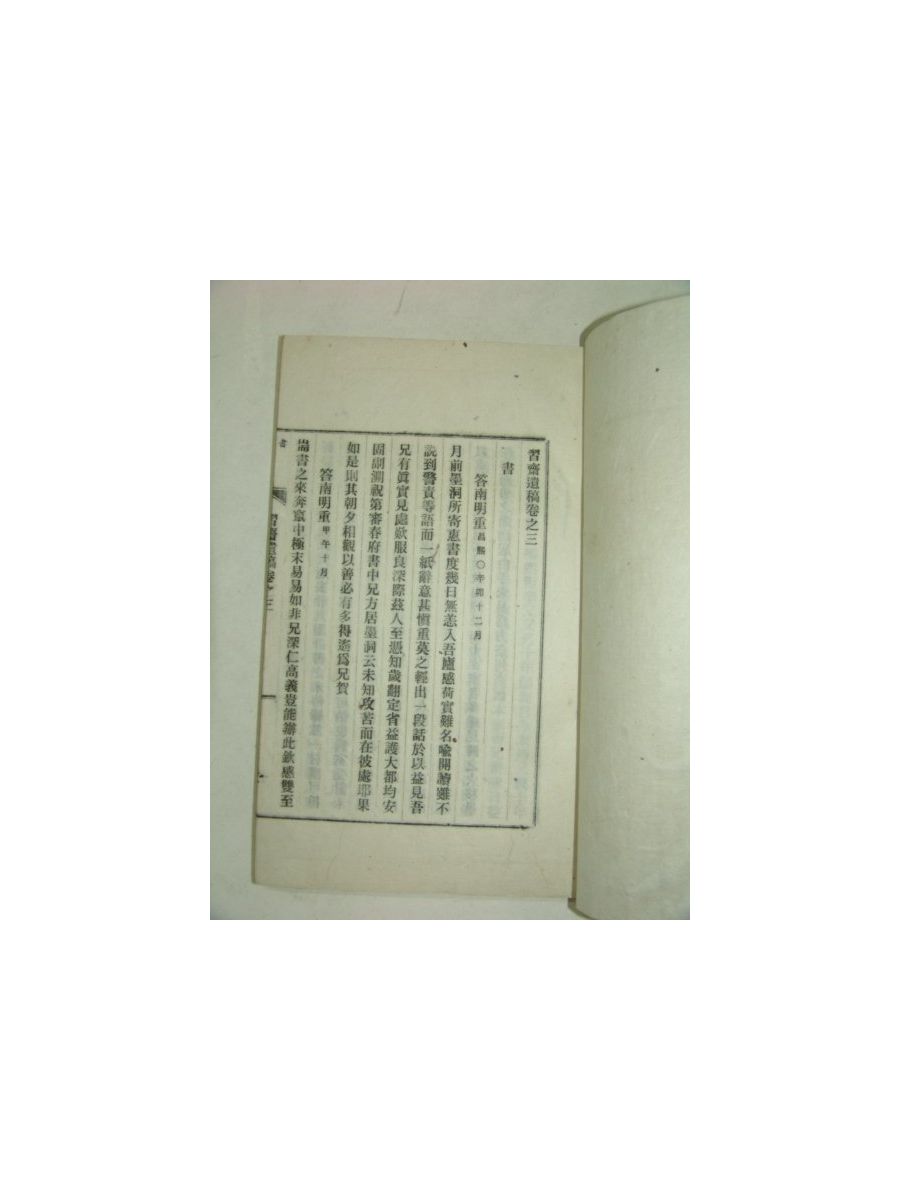 習齋遺稿卷之三
書
答南明重昌熙〇辛卯十二月
月前墨洞所寄惠書度幾日無恙入吾廬感荷實難名喩開讀雖不
說到警責等語而一紙辭意甚愼重莫之輕出一段話於以益見吾
兄有眞實見處歎服良深際玆人至憑知歲翻定省益護大都均安
固副溯祝第審春府書中兄方居墨洞云未知攻苦而在彼處耶果
如是則其朝夕相觀以善必有多得遙爲兄賀
答南明重甲午十月
耑書之來奔竄中極末易易如非兄深仁高義豈能辦此欽感雙至
習齋遺稿卷之三
書